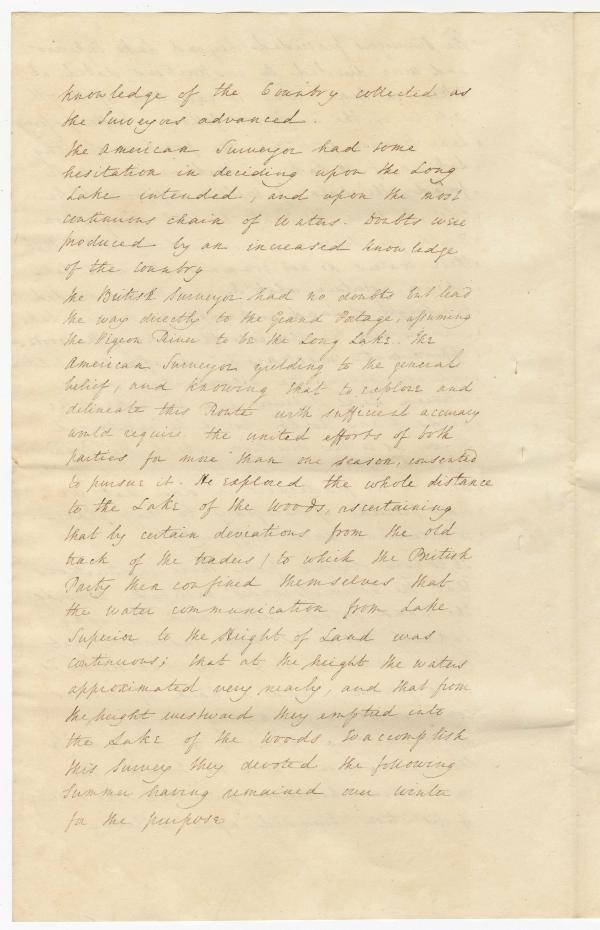 knowledge of the Country collected as
the Surveyors advanced.
The American Surveyor had some
hesitation in deciding upon the Long
Lake intended, and upon the most
continuous chain of Waters. Doubts were
produced by an increased knowledge
of the country
The British Surveyor had no doubts but lead
the way directly to the Grand Portage, assuming
the Pigeon River to be the Long Lake. The
American Surveyor yielding to the general
belief, and knowing that to explore and
delineate this Route with sufficient accuracy
would require the united efforts of both
parties for more than one season, consented
to pursue it. He explored the whole distance
to the Lake of the Woods, ascertaining
that by certain deviations from the old
track of the traders / to which the British
Party then confined themselves that
the water communication from Lake
Superior to the Hight of Land was
continuous; that at the height the waters
approximated very nearly, and that from
the height westward they emptied into
the Lake of the Woods. To accomplish
this Survey they devoted the following
Summer having remained over winter
for the purpose